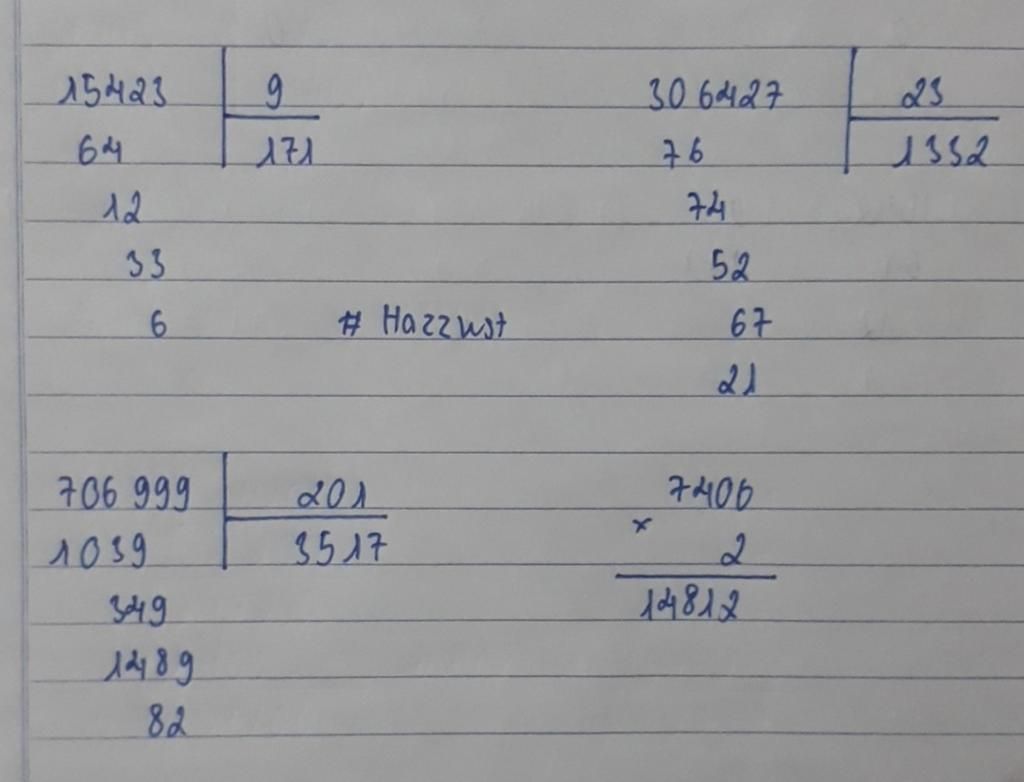 15423 9
64 171
12
33
6
# Hazzust
306427 23
76 1332
74
52
67
21
706 999 201
1039 3517
349
1489
82
7406
× 2
14812